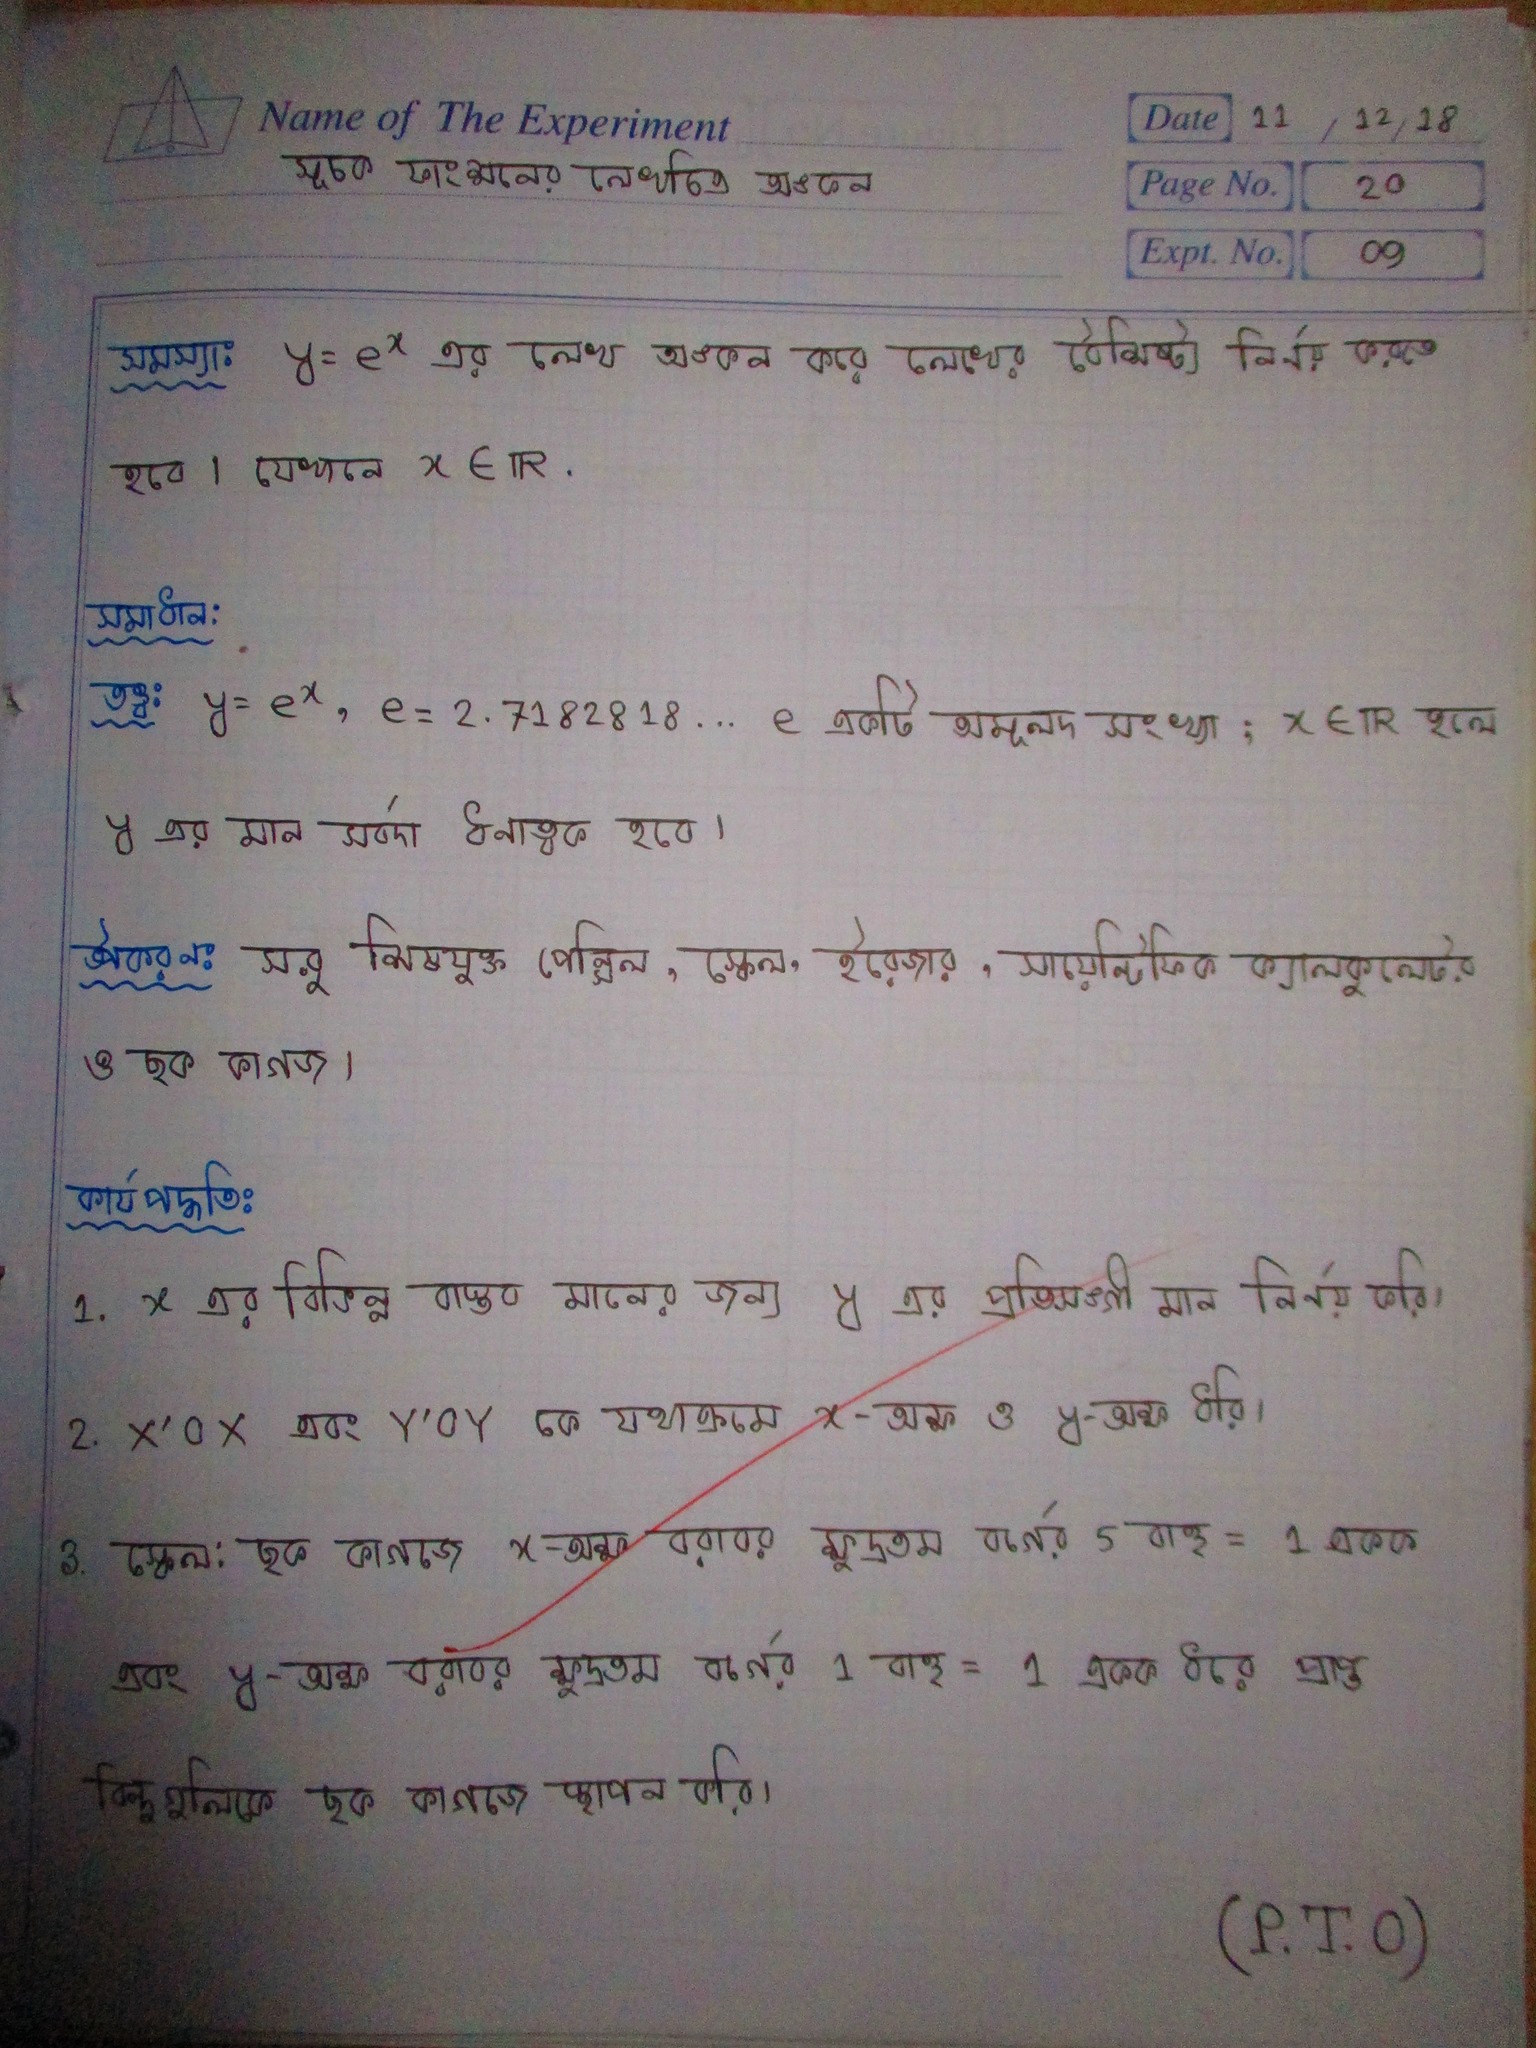 Name of The Experiment
Date 11 / 12/18
সূচক ফাংশনের লেখচিত্র অঙ্কন
Page No. 20
Expt. No. 09
সমস্যাঃ y = eˣ এর লেখ অঙ্কন করে লেখের বৈশিষ্ট্য নির্ণয় করতে
হবে। যেখানে x ∈ ℝ.
সমাধান:
তত্ত্ব: y = eˣ, e = 2.7182818... e একটি অমূলদ সংখ্যা ; x ∈ ℝ হলে
y এর মান সর্বদা ধনাত্মক হবে।
উপকরণঃ সরু শিষযুক্ত পেন্সিল, স্কেল, ইরেজার, সায়েন্টিফিক ক্যালকুলেটর
ও ছক কাগজ।
কার্যপদ্ধতিঃ
1. x এর বিভিন্ন বাস্তব মানের জন্য y এর প্রতিসঙ্গী মান নির্ণয় করি।
2. X'OX এবং Y'OY কে যথাক্রমে x-অক্ষ ও y-অক্ষ ধরি।
3. স্কেল: ছক কাগজে x-অক্ষ বরাবর ক্ষুদ্রতম বর্গের 5 বাহু = 1 একক
এবং y-অক্ষ বরাবর ক্ষুদ্রতম বর্গের 1 বাহু = 1 একক ধরে প্রাপ্ত
বিন্দুগুলিকে ছক কাগজে স্থাপন করি।
(P.T.O)